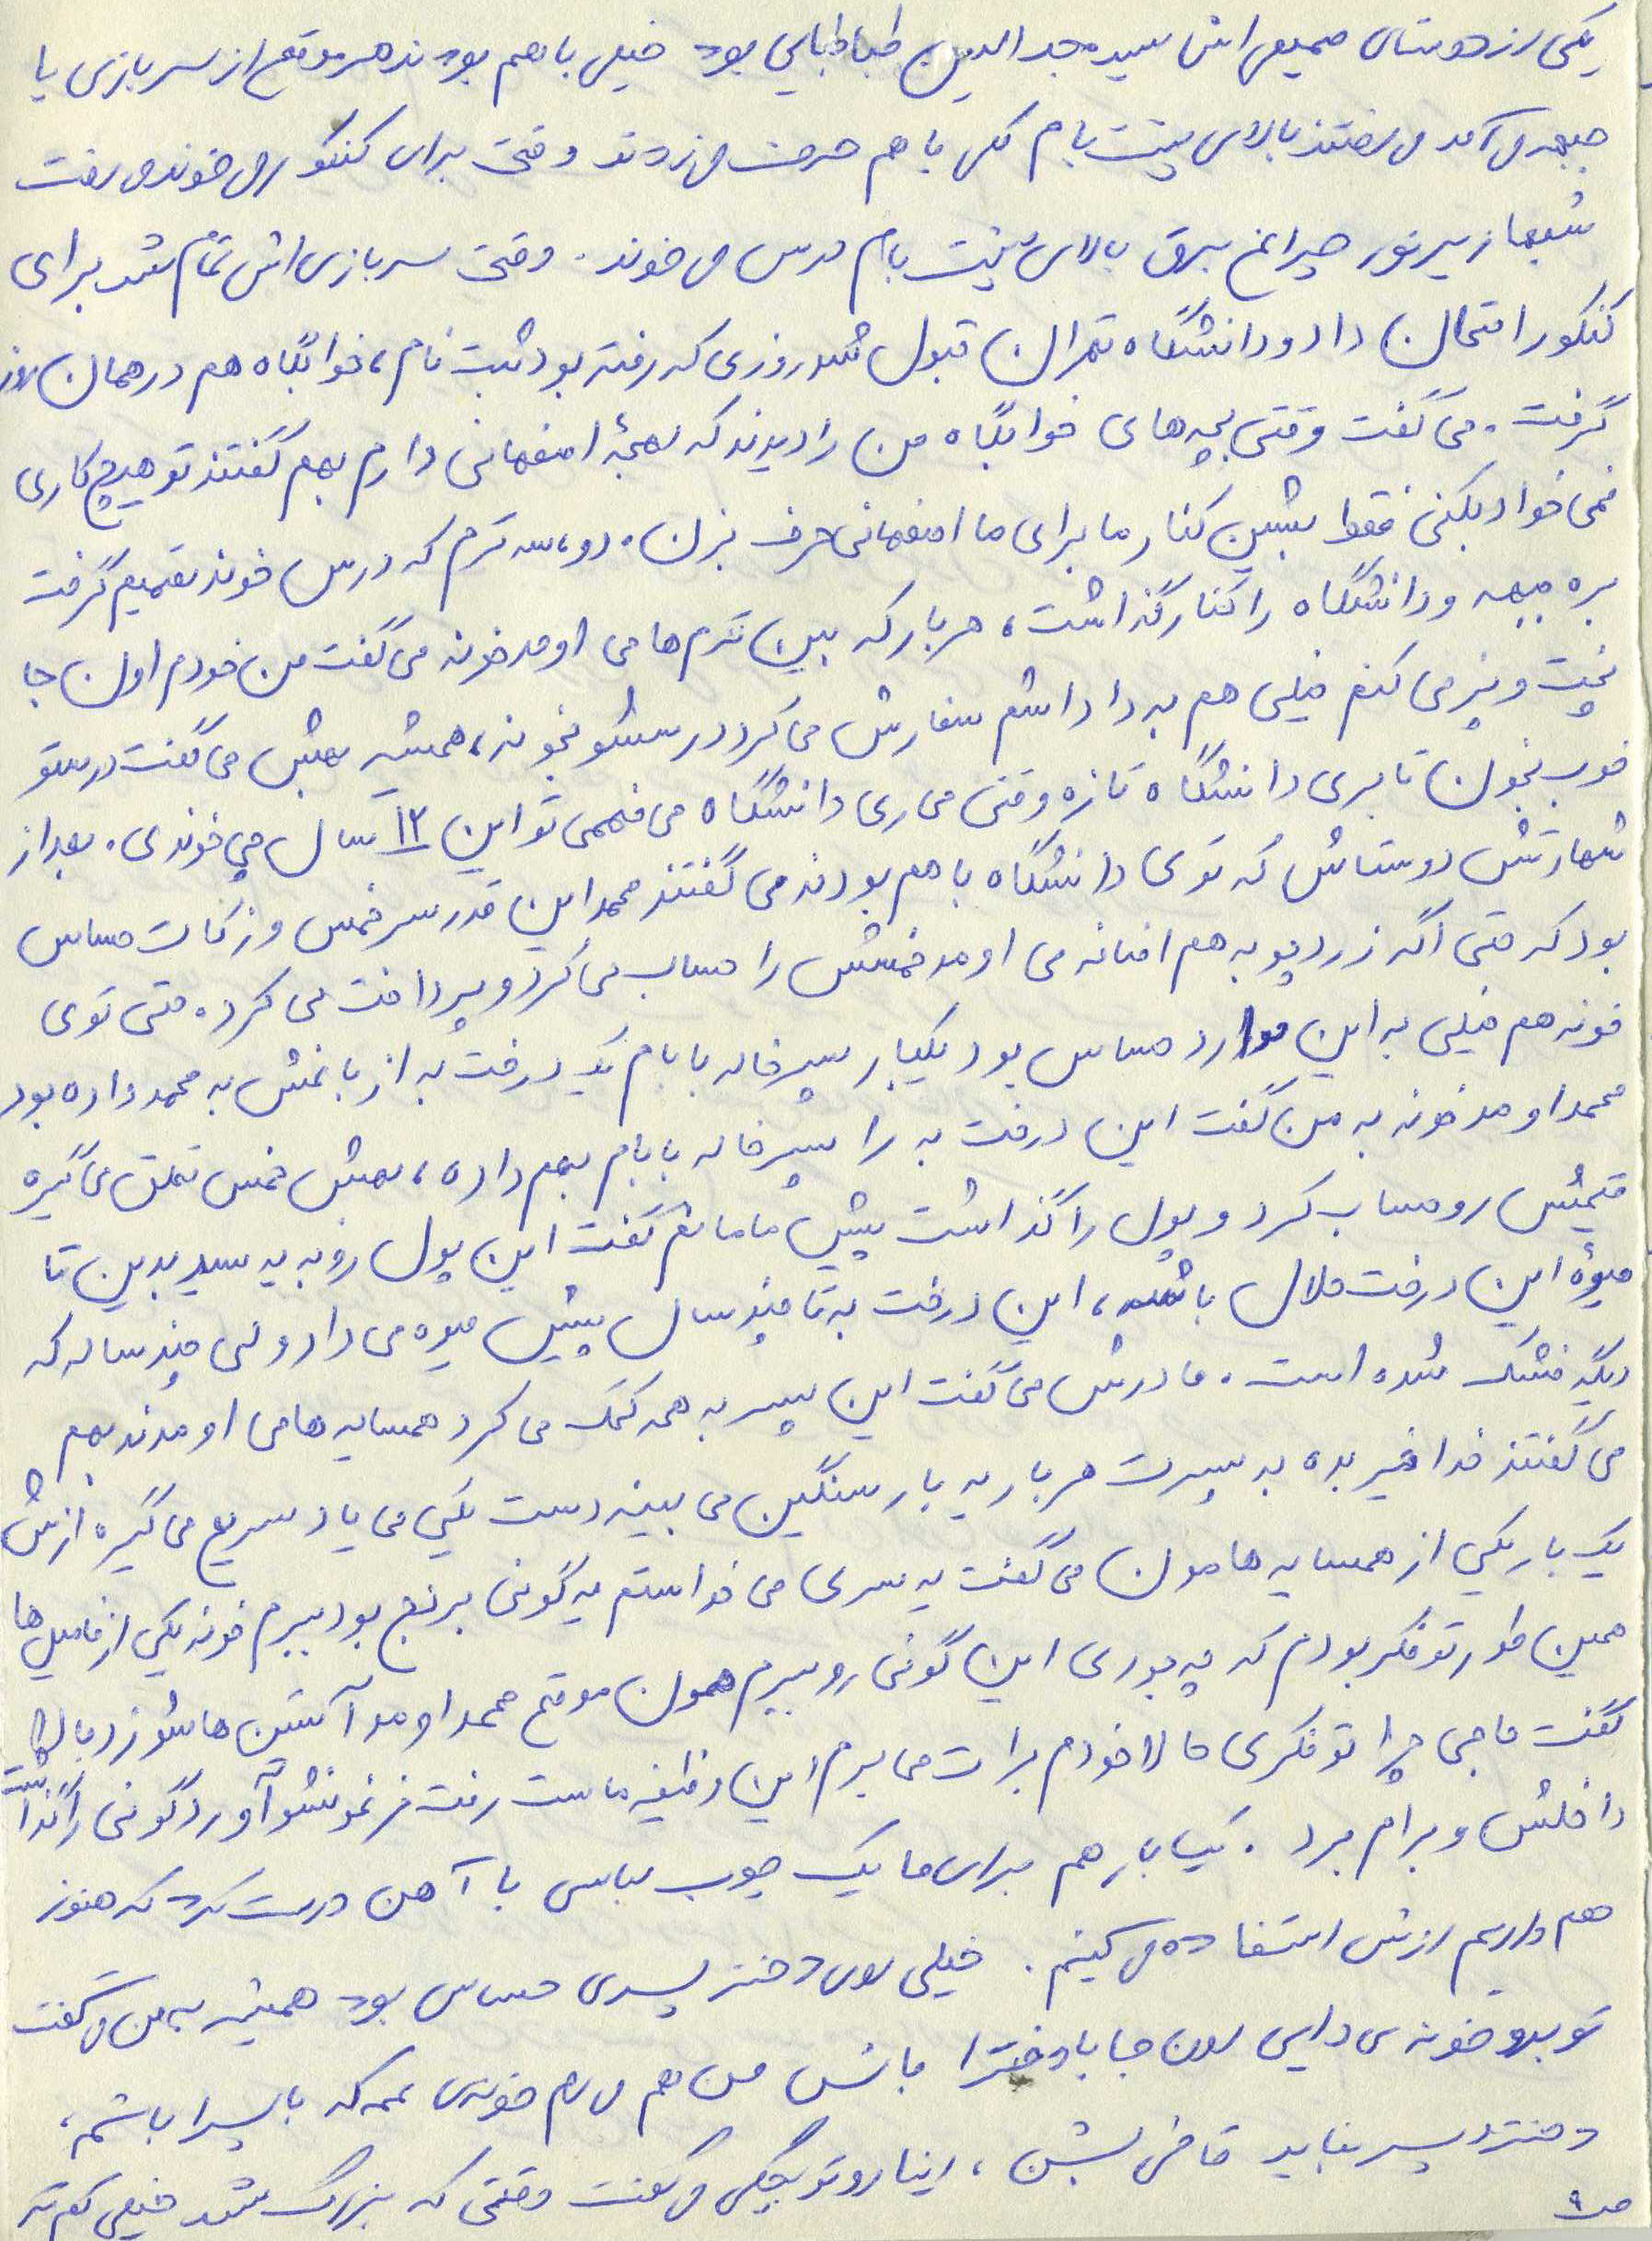 یکی از دوستای صمیمی اش سید مجد الدین طباطبایی بود خیلی با هم بودند هر موقع از سربازی یا
جبهه می آمد می رفتند بالای پشت بام کلی با هم حرف می زدند وقتی برای کنکور می خوند می رفت
شبها زیر نور چراغ برق بالای پشت بام درس می خوند. وقتی سربازی اش تمام شد برای
کنکور امتحان داد و دانشگاه تهران قبول شد روزی که رفته بود ثبت نام، خوابگاه هم در همان روز
گرفت. می گفت وقتی بچه های خوابگاه من را دیدند که لهجهٔ اصفهانی دارم بهم گفتند تو هیچ کاری
نمی خواد بکنی فقط بشین کنار ما برای ما اصفهانی حرف بزن. دو، سه ترم که درس خوند تصمیم گرفت
بره جبهه و دانشگاه را کنار گذاشت، هر بار که بین ترم ها می اومد خونه می گفت من خودم اون جا
پخت و پز می کنم خیلی هم به داداشم سفارش می کرد درسشو بخونه، همیشه بهش می گفت درستو
خوب بخون تا بری دانشگاه تازه وقتی می ری دانشگاه می فهمی تو این ۱۲ سال چی خوندی. بعد از
شهادتش دوستاش که توی دانشگاه با هم بودند می گفتند محمد این قدر سر خمس و زکات حساس
بود که حتی اگه زردچوبه هم اضافه می اومد خمسش را حساب می کرد و پرداخت می کرد. حتی توی
خونه هم خیلی به این موارد حساس بود یکبار پسرخاله بابام یک درخت به از باغش به محمد داده بود
محمد اومد خونه به من گفت این درخت به را پسرخاله بابام بهم داده، بهش خمس تعلق می گیره
قیمتش رو حساب کرد و پول را گذاشت پیش مامانم گفت این پول رو به یه سید بدین تا
میوهٔ این درخت حلال باشه، این درخت به تا چند سال پیش میوه می داد ولی چند ساله که
دیگه خشک شده است. مادرش می گفت این پسر به همه کمک می کرد همسایه ها می اومدند بهم
می گفتند خدا خیر بده به پسرت هر بار یه بار سنگین می بینه دست یکی می یاد سریع می گیره ازش
یک بار یکی از همسایه هامون می گفت یه سری می خواستم یه گونی برنج بود ببرم خونه یکی از فامیل ها
همین طور تو فکر بودم که چه جوری این گونی رو ببرم همون موقع محمد اومد آستین هاشو زد بالا
گفت حاجی چرا تو فکری حالا خودم برات می برم این وظیفه ماست رفت فرغونشو آورد گونی را گذاشت
داخلش و برام برد. یک بار هم برای ما یک چوب لباسی با آهن درست کرد که هنوز
هم داریم ازش استفاده می کنیم. خیلی روی دختر پسری حساس بود همیشه به من می گفت
تو برو خونه ی دایی اون جا با دخترا باش من هم می رم خونه ی عمه که با پسرا باشم،
دختر و پسر نباید قاطی بشن، اینا رو تو بچگی می گفت وقتی که بزرگ شد خیلی کم تر
ص ۹